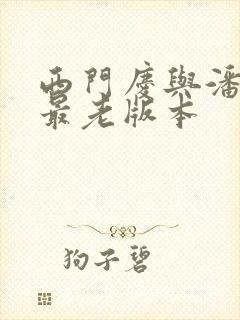 西門慶與潘
最老版本
狗子碧